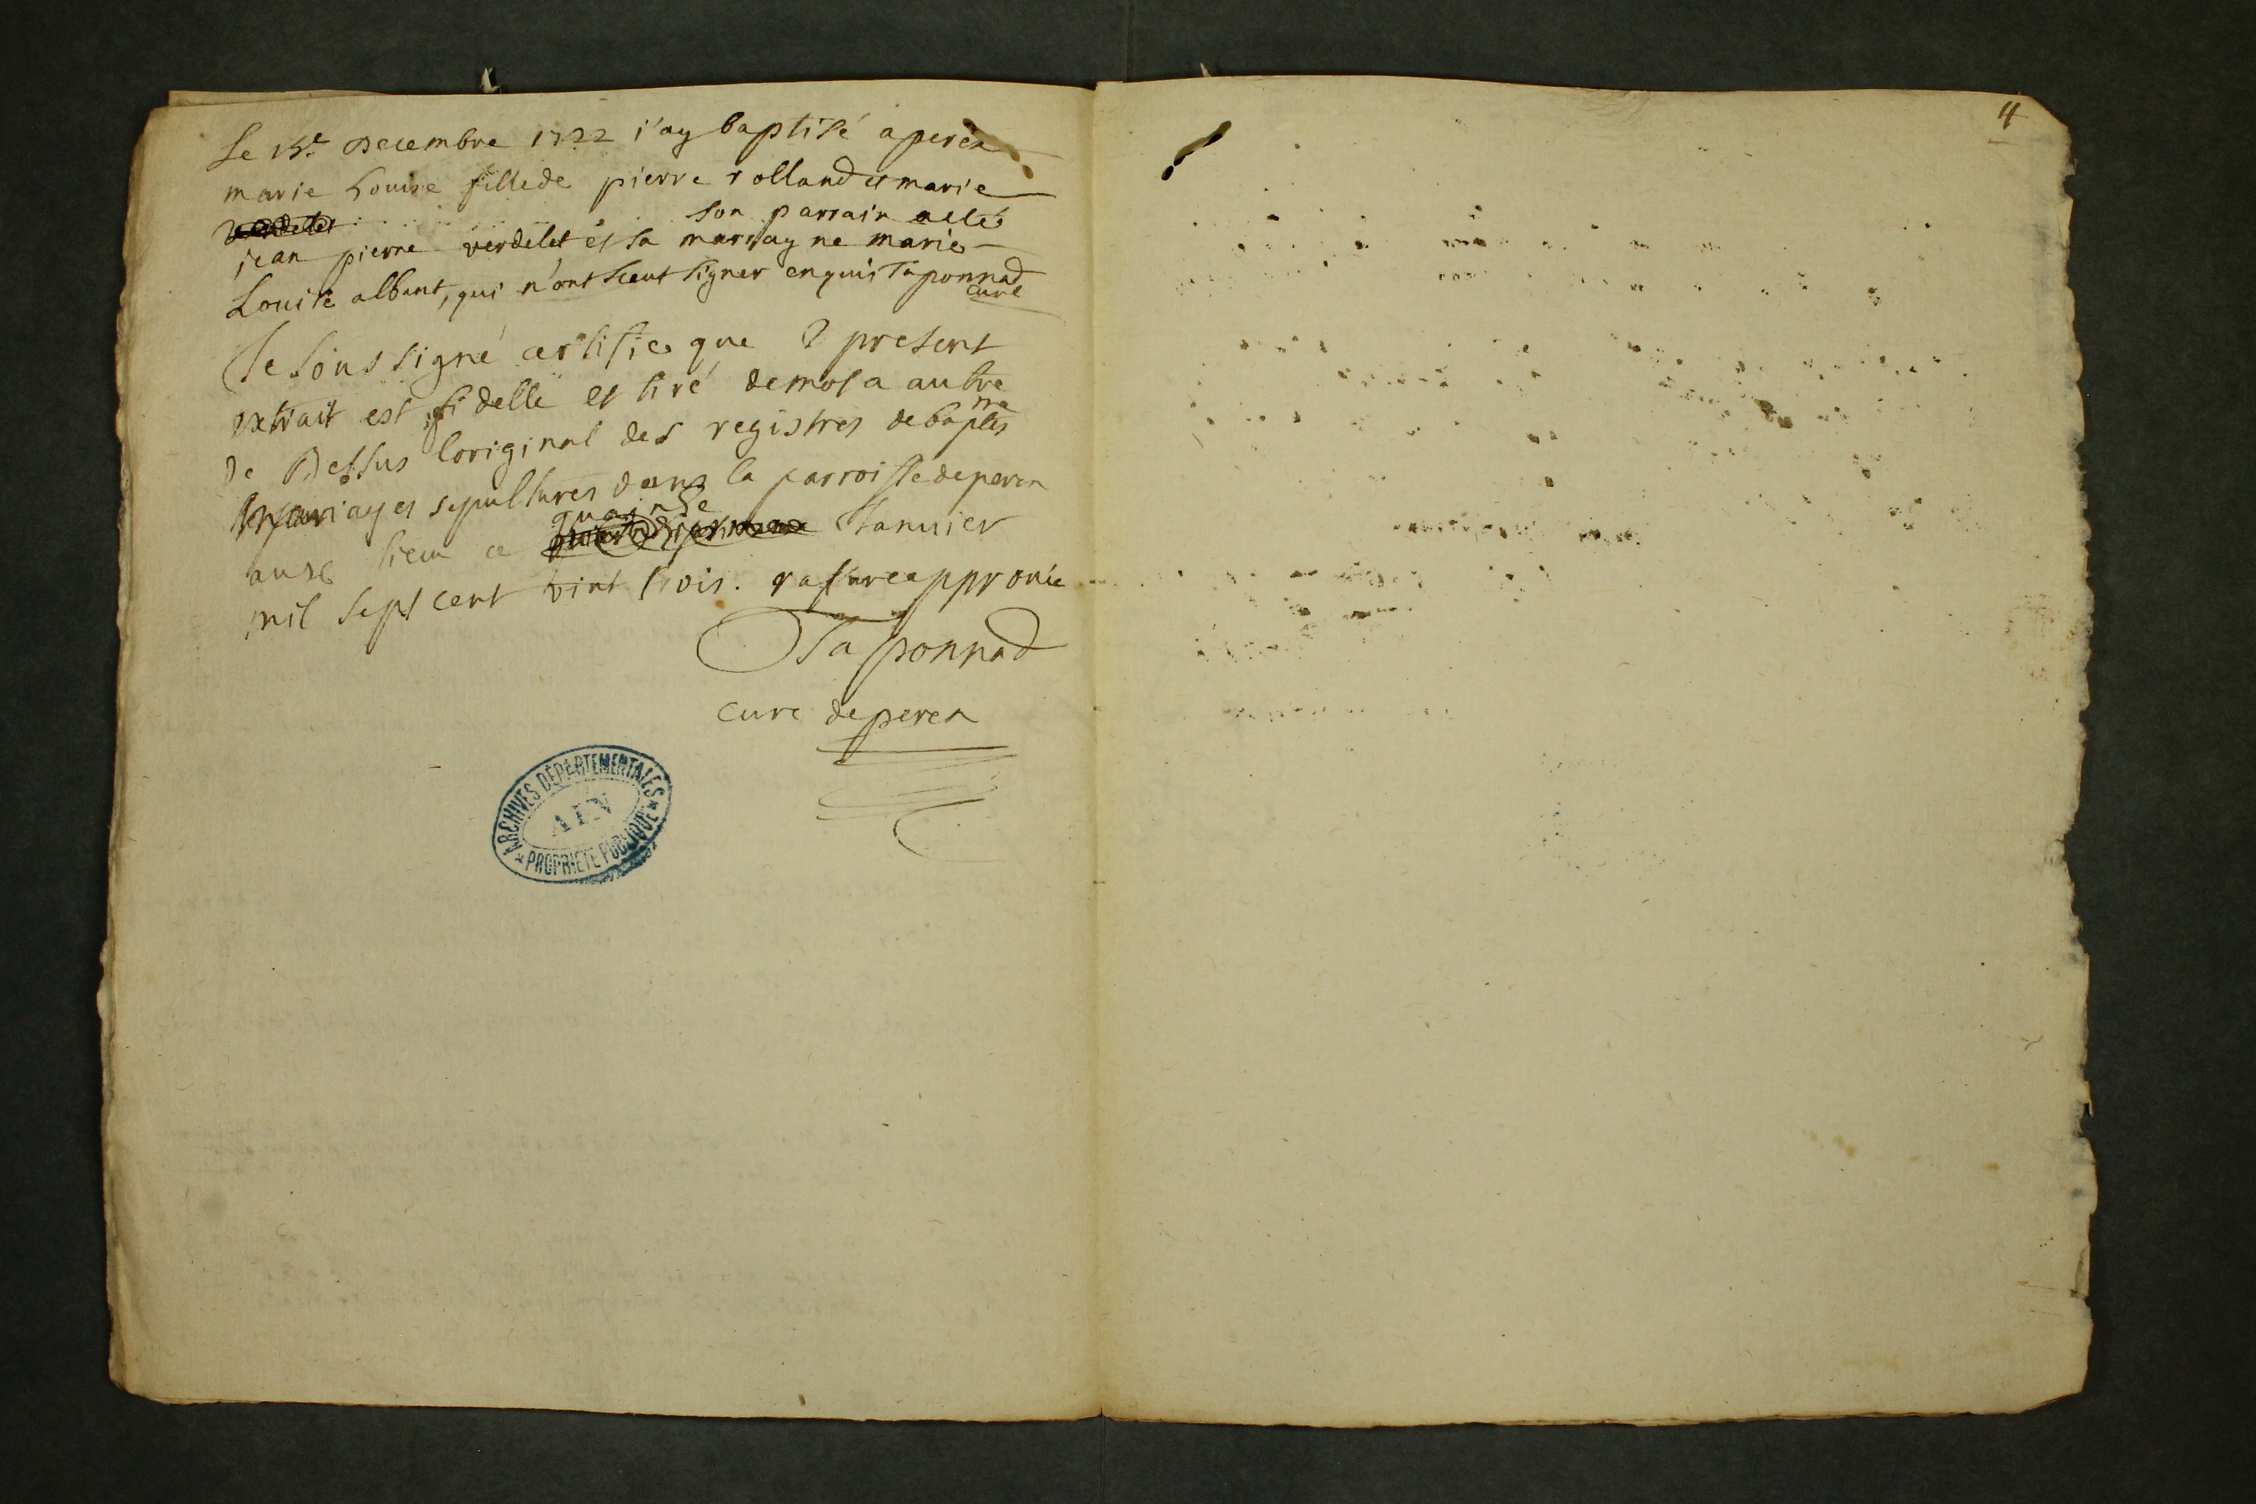 4
Le 15e Decembre 1722 j'ay baptisé a peren
marie Louise fille de pierre rolland et marie
verdelet
son parrain a eté
jean pierre verdelet et sa marrayne marie
Louise albant, qui n'ont sceut signer enquis Taponnad
curé
Je soussigné certifie que l present
extrait est fidelle et tiré de mot a autre
de Dessus loriginal des registres de baptes
me
mariages sepultures dans la parroisse de peren
quainse
audt lieu ce Januier
mil sept cent vint trois. rasure approuie
Taponnad
cure de peren
ARCHIVES DÉPARTEMENTALES
AIN
PROPRIÉTÉ PUBLIQUE